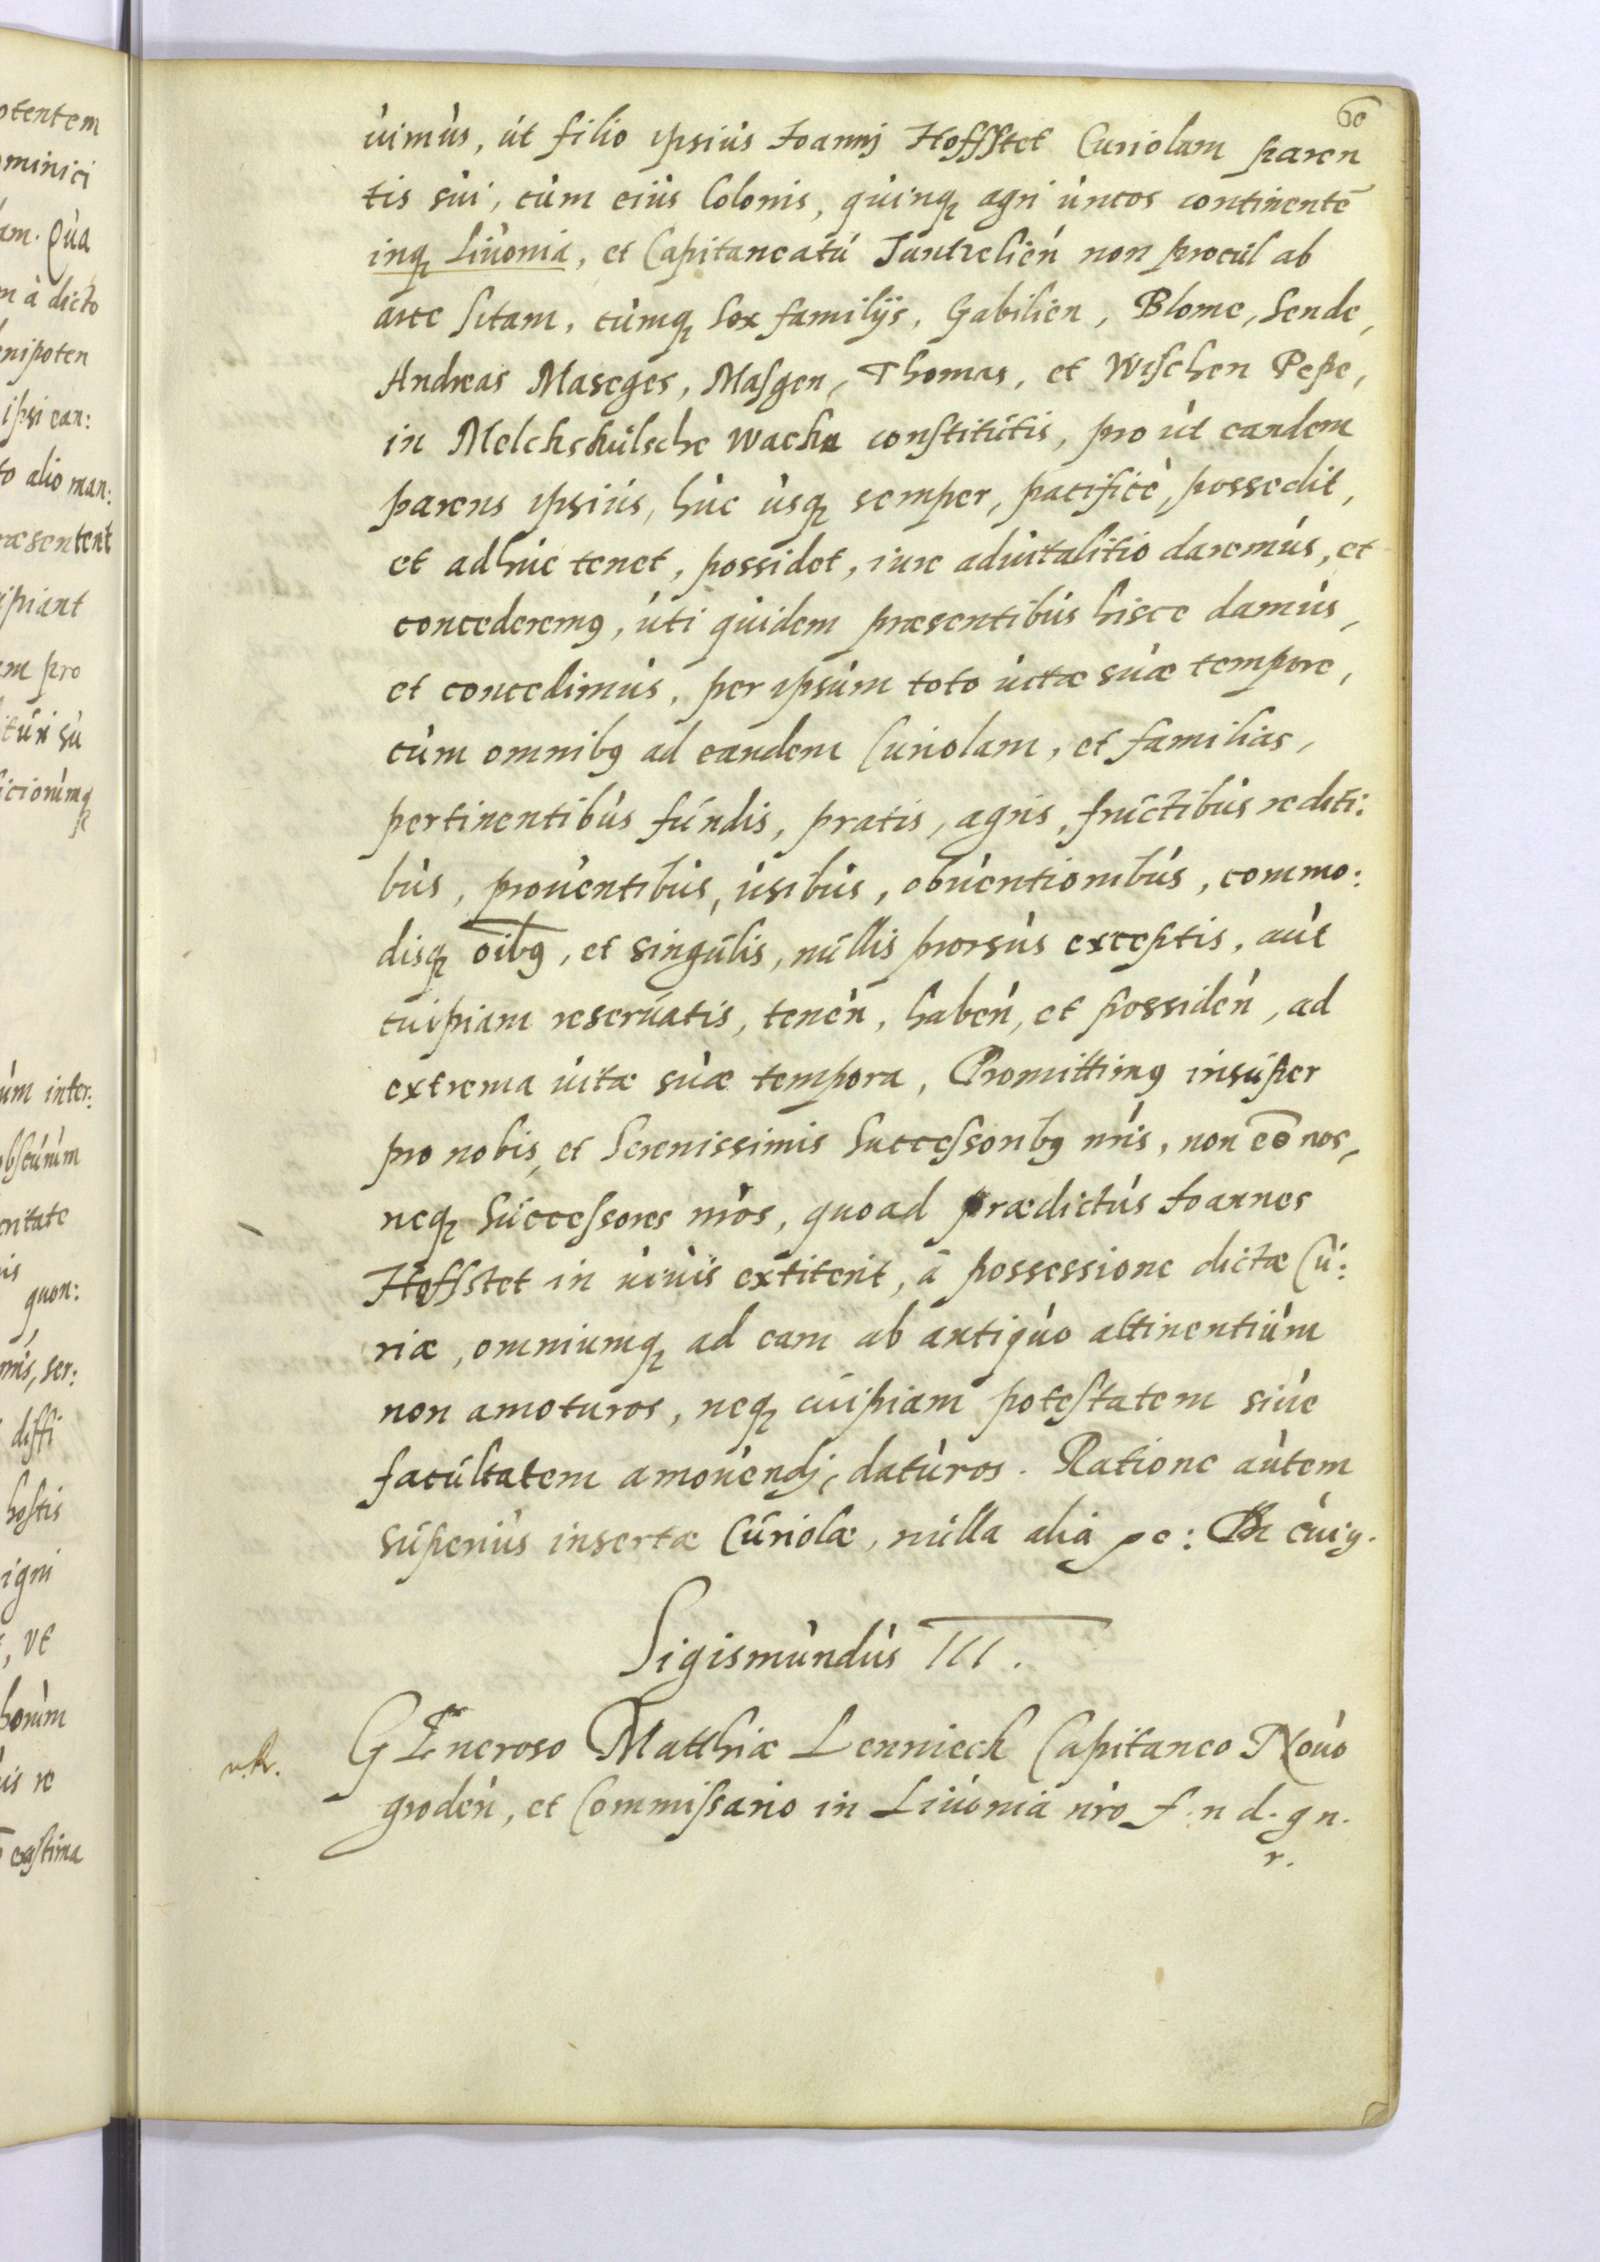 60
uimus, ut filio ipsius Joannj Hoffstet Curiolam paren
tis sui, cum eius Colonis, quinq agri uncos continentē
inq Liuonia, et Capitaneatu Juntzelień non procul ab
arce sitam, cumq sex familijs, Gabilien, Blome, Sende,
Andreas Maseges, Masgen, Thomas, et Wischen Pepe,
in Melckshulsche wacka constitutis, pro ut eandem
parens ipsius, huc usq semper, pacificè possedit,
et adhuc tenet, possidet, iure aduitalitio daremus, et
concederemꝰ, uti quidem præsentibus hisce damus,
et concedimus, per ipsum toto uitæ suæ tempore,
cum omnibꝰ ad eandem Curiolam, et familias,
pertinentibus fundis, pratis, agris, fructibus rediti:
bus, prouentibus, usibus, obuentionibus, commo:
disq oībꝰ, et singulis, nullis prorsus exceptis, aut
cuipiam reseruatis, teneń, habeń, et possideń, ad
extrema uitæ suæ tempora, Promittimꝰ insuper
pro nobis, et Serenissimis Successoribꝰ nris, non eō nos,
neq Successores nros, quoad prædictus Joannes
Hoffstet in uiuis extiterit, à possessione dictæ Cu:
riæ, omniumq ad eam ab antiquo attinentium
non amoturos, neq cuipiam potestatem siue
facultatem amouendj, daturos. Ratione autem
superius insertæ Curiolæ, nulla alia pe: In cuiꝰ.
Sigismundus III.
GEneroso Matthiæ Lennieck Capitaneo Nouo
grodeń, et Commissario in Liuonia nro f. n d. g n.
r.
otentem
minici
am. Qua
m à dicto
nipoten
ipsi ean:
to alio man:
ræsentent
ipiant
em pro
turi su
iciorumq
um inter:
obscurum
eritate
quon:
diffi
hostis
igni
, ut
horum
is re